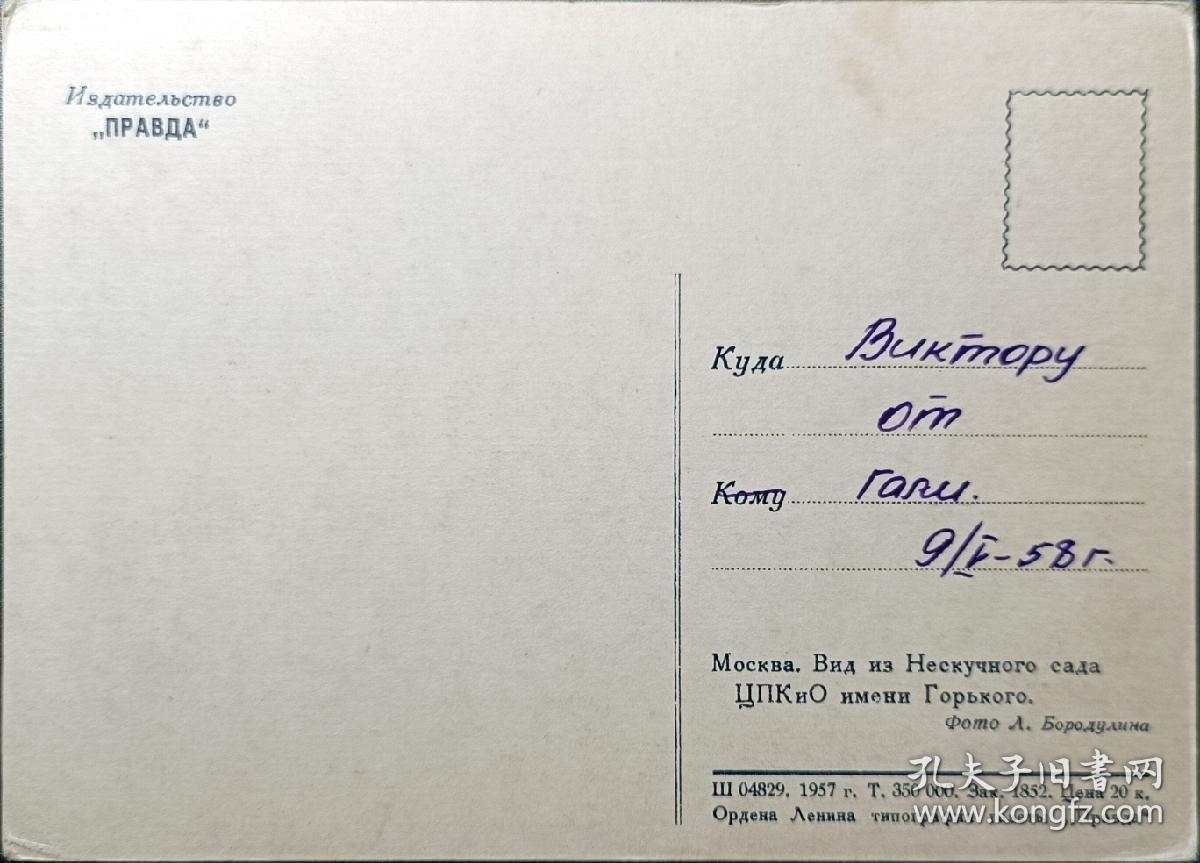 Издательство
„ПРАВДА“
Куда Виктору
от
Кому Гали.
9/V-58 г.
Москва. Вид из Нескучного сада
ЦПКиО имени Горького.
Фото Л. Бородулина
Ш 04829. 1957 г. Т. 350 000. Зак. 1852. Цена 20 к.
Ордена Ленина
孔夫子旧书网
www.kongfz.com